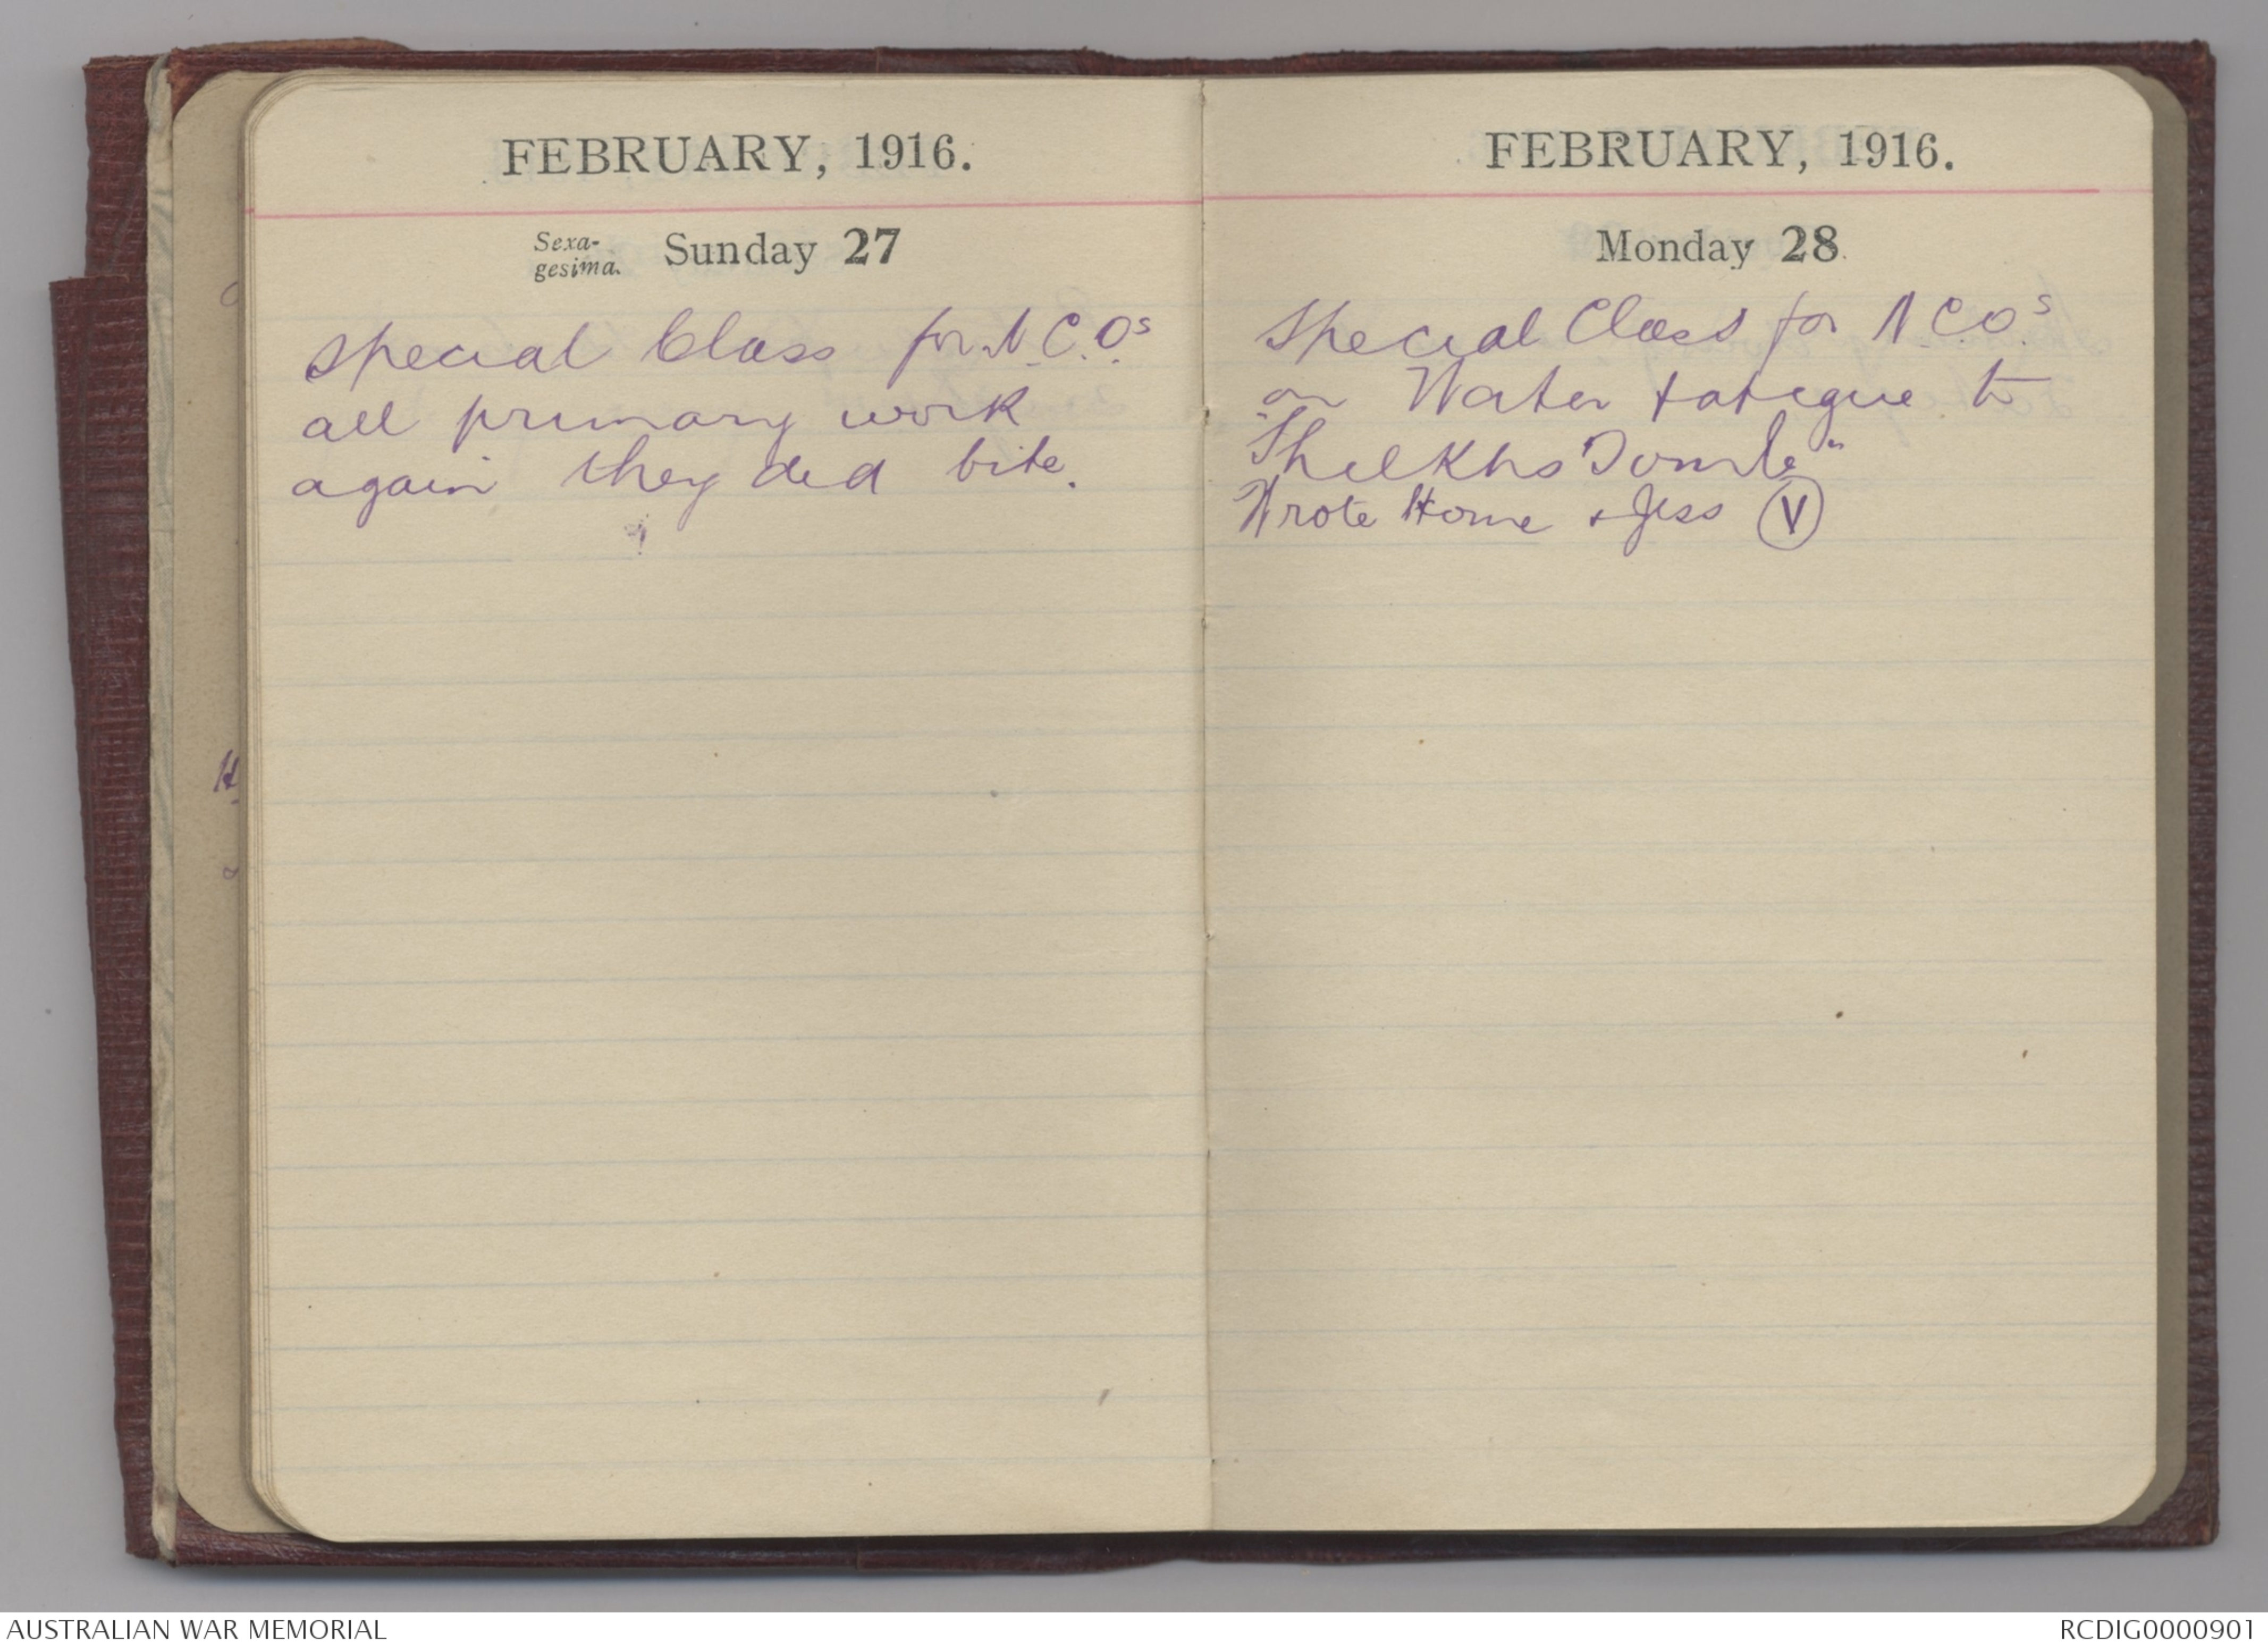 FEBRUARY, 1916.
Sexa-
gesima. Sunday 27
Special Class for N.C.Os
all primary work
again they did bite.
FEBRUARY, 1916.
Monday 28
Special Class for N.C.Os
on Water fatigue to
"Shelkhs Tomb"
Wrote Home + Jess V
H
AUSTRALIAN WAR MEMORIAL
RCDIG0000901